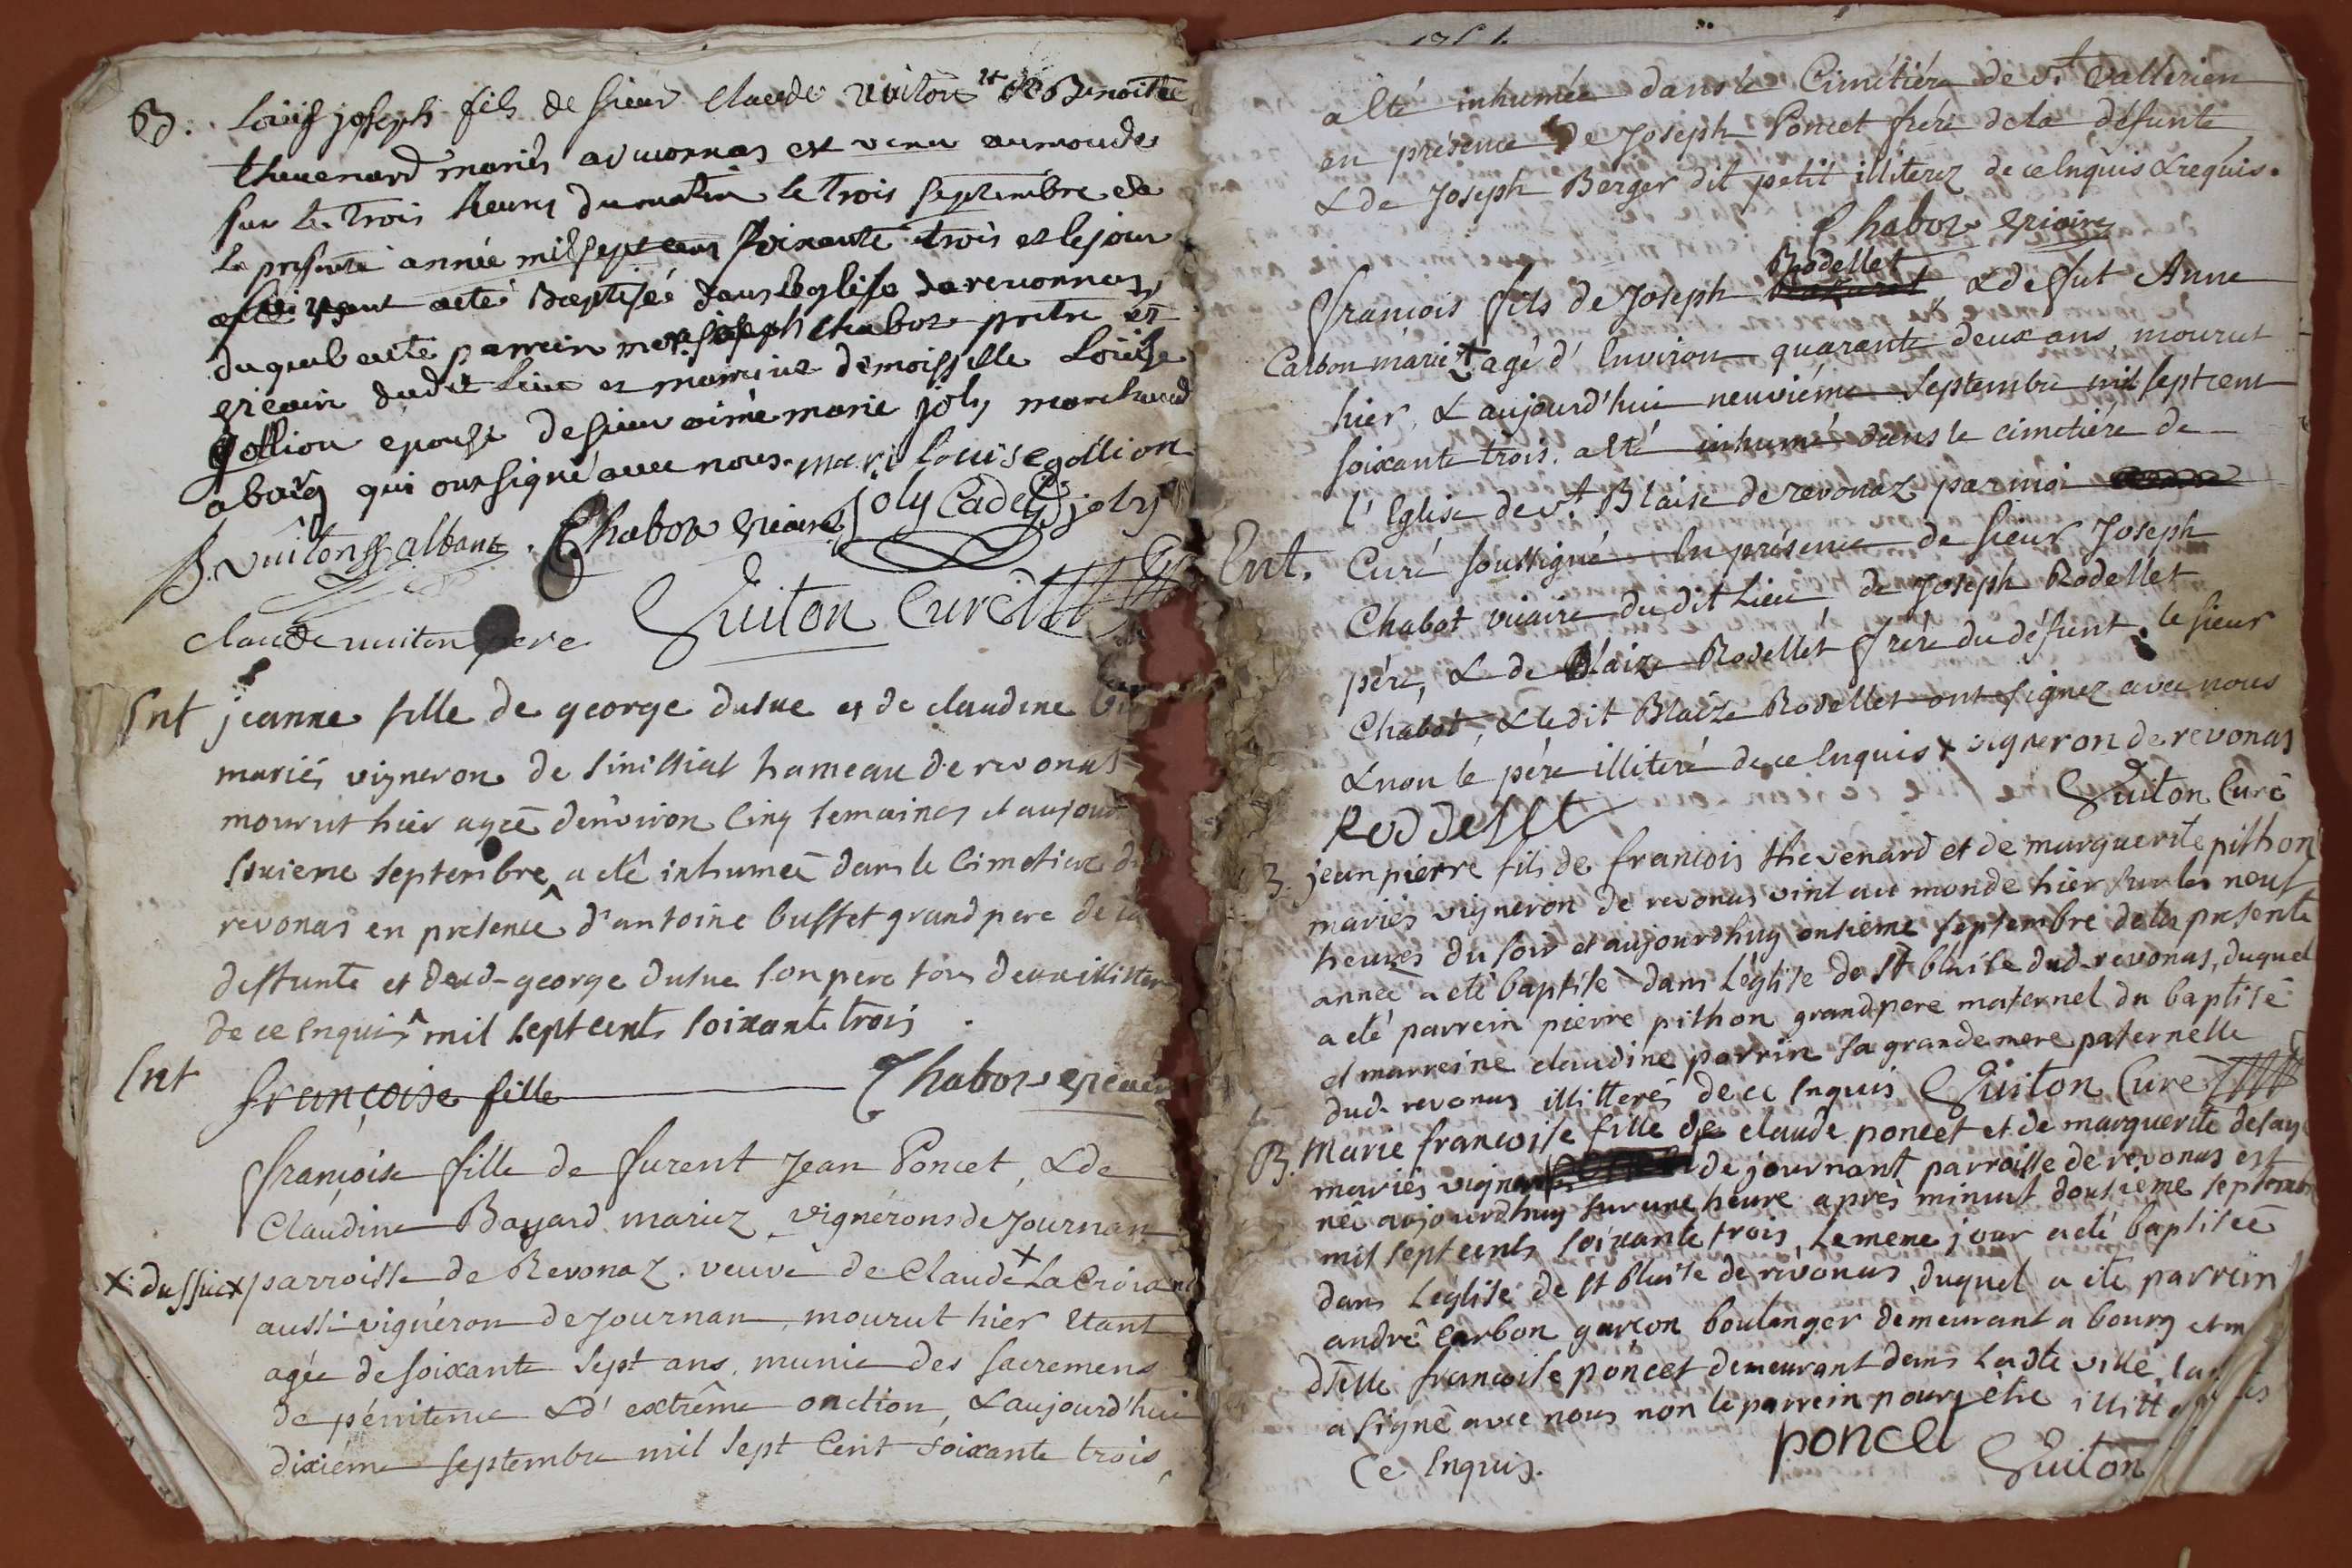 B. Loüis joseph fils de sieur claude vuiton et de Benoitte
thevenard mariés a revonnas est venu aumonde
sur les trois heures dumatin le trois septembre de
la presente année mil sept cens soixante trois et le jour
suivant aeté Baptisé dans l'eglise de revonnas,
duquel aeté parrein mesr. joseph chabot pretre et
vicaire dudit lieu et marreine demoisselle Loüise
gollion epouse desieur aimé marie joly marchand
a bourg qui ont signé avec nous. mari louise gollion
B. vuiton st albane. Chabot vicaire joly Cadet joly
claude vuiton pere Vuiton Curé
Ent jeanne fille de george dusue et de claudine
mariés vigneron de Sinissiat hameau de revonas
mourut hier ageé d'environ cinq semaines et aujour
sixieme septembre ^ a eté inhumeé dans le cimetiere
revonas en presence d'antoine buffet grand pere de la
deffunte et dud. george dusue son pere tous deux illitter
de ce enquis ^ mil sept cents soixante trois.
Ent françoise fille Chabot vicaire
françoise fille de furent Jean Poncet, & de
Claudine Bayard mariez, vignérons de Journan
x dussuc x parroisse de Revonaz. veuve de Claude x La Croix
aussi vignéron de Journan, mourut hier étant
agée de soixante sept ans, munie des sacremens
de pénitence & d'extrême onction, & aujourd'hui
dixiéme septembre mil sept cent soixante trois,
a eté inhumée dans le Cimétiére de st. Vallerien
en présence de Joseph Poncet frére de la défunte
& de Joseph Berger dit petit illiterez de ce enquis & requis.
Chabot vicaire
Rodellet
françois fils de Joseph & de fut Anne
Carbon mariés x agé d'environ quarante deux ans, mourut
hier, & aujourd'hui neuviéme septembre mil sept cent
soixante trois. a eté inhumé dans le cimetiére de
l'Eglise de st. Blaise de revonaz par moi
Ent. Curé soussigné en présence de sieur Joseph
Chabot vicaire du dit Lieu, de Joseph Rodellet
pére, & de Blaize Rodellet frére du défunt. le sieur
Chabot, & le dit Blaize Rodellet ont signez avec nous
& non le pére illiteré de ce enquis x vigneron de revonas
Roddellet Vuiton Curé
B. jean pierre fils de francois thevenard et de marguerite pithon
mariés vigneron de revonas vint au monde hier sur les neuf
heures du soir et aujourdhuy onsieme septembre de la presente
année a eté baptisé dans l'église de st blaise dud. revonas, duquel
a eté parrein pierre pithon grand pere maternel du baptisé
et marreine claudine perrin sa grande mere paternelle
dud. revonas illitterés de ce enquis Vuiton Curé
B. Marie francoise fille de claude poncet et de marguerite
mariés vigneron de journant parroisse de revonas est
neé aujourdhuy sur une heure aprés minuit dousieme septembre
mil sept cents soixante trois, le meme jour a eté baptiseé
dans l'église de st blaise de revonas duquel a eté parrein
andré Carbon garçon boulanger demeurant a bourg et m
dlelle francoise poncet demeurant dans ladte ville,
a signé avec nous non le parrein pour y être
ce enquis. poncet Vuiton